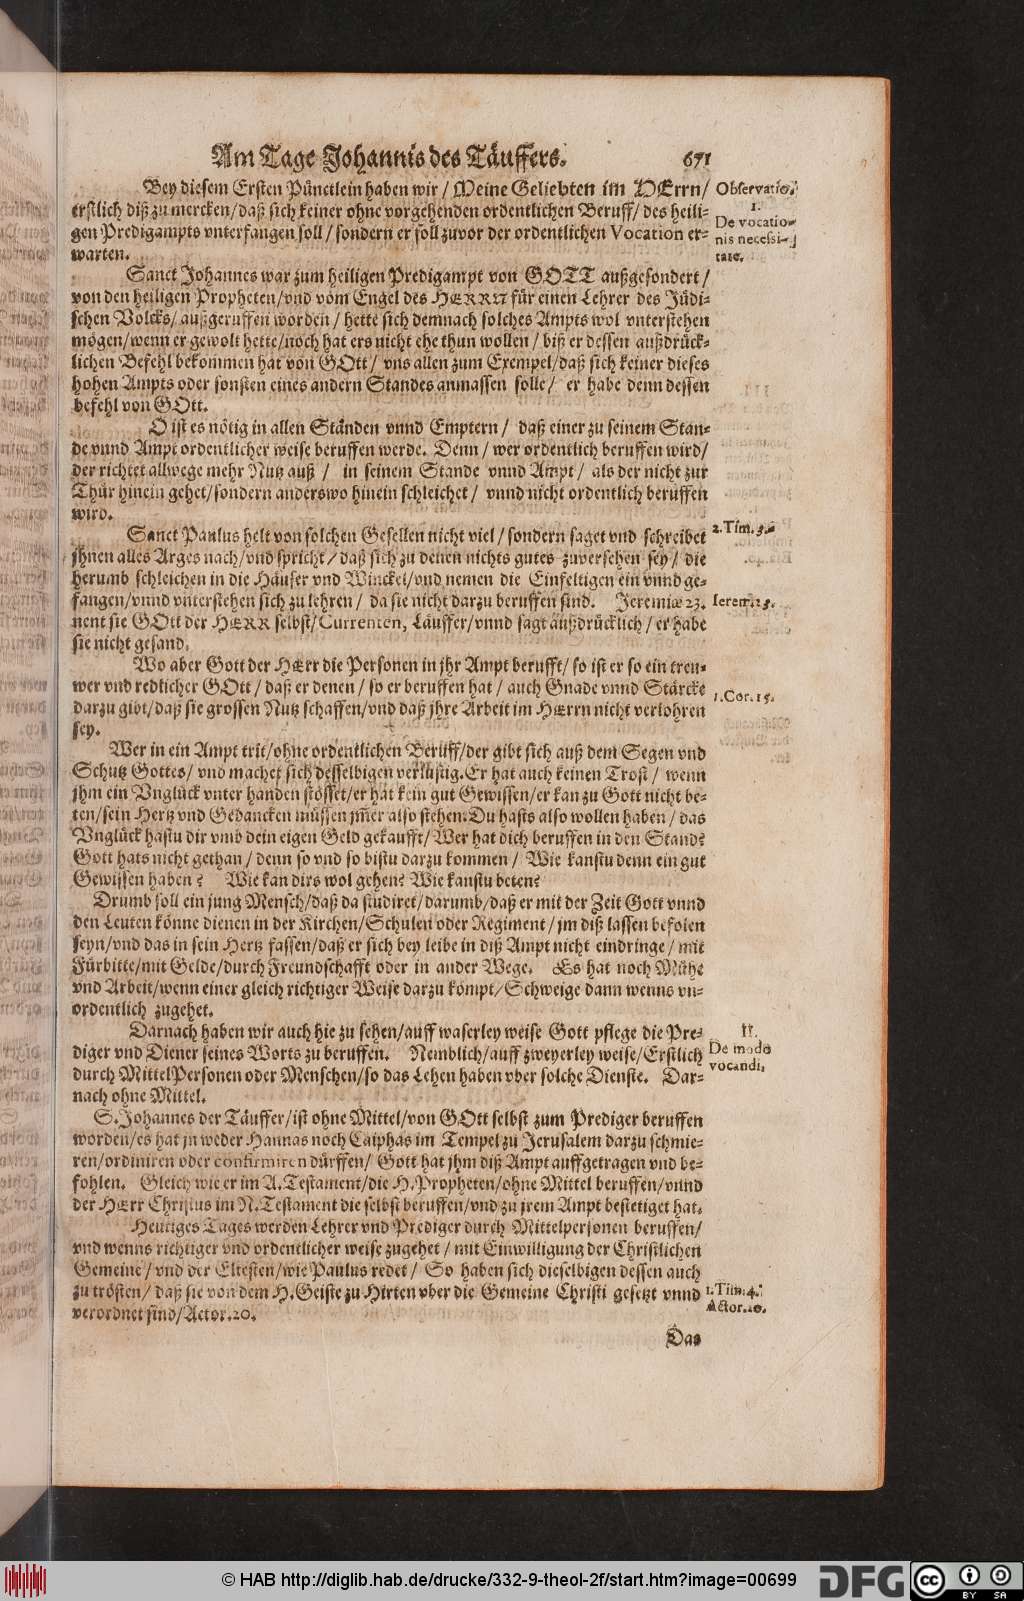 Am Tage Johannis des Täuffers. 671
Bey diesem Ersten Pünctlein haben wir / Meine Geliebten im HErrn /
erstlich diß zu mercken / daß sich keiner ohne vorgehenden ordentlichen Beruff / des heili-
gen Predigampts vnterfangen soll / sondern er soll zuvor der ordentlichen Vocation er-
warten.
Observatio.
1.
De vocatio-
nis necessi-
tate.
Sanct Johannes war zum heiligen Predigampt von GOTT außgesondert /
von den heiligen Propheten / vnd vom Engel des HERRN für einen Lehrer des Jüdi-
schen Volcks / außgeruffen worden / hette sich demnach solches Ampts wol vnterstehen
mögen / wenn er gewolt hette / noch hat ers nicht ehe thun wollen / biß er dessen außdrück-
lichen Befehl bekommen hat von GOtt / vns allen zum Exempel / daß sich keiner dieses
hohen Ampts oder sonsten eines andern Standes anmassen solle / er habe denn dessen
befehl von GOtt.
O ist es nötig in allen Ständen vnnd Emptern / daß einer zu seinem Stan-
de vnnd Ampt ordentlicher weise beruffen werde. Denn / wer ordentlich beruffen wird /
der richtet allwege mehr Nutz auß / in seinem Stande vnnd Ampt / als der nicht zur
Thür hinein gehet / sondern anderswo hinein schleichet / vnnd nicht ordentlich beruffen
wird.
Sanct Paulus helt von solchen Gesellen nicht viel / sondern saget vnd schreibet
jhnen alles Arges nach / vnd spricht / daß sich zu denen nichts gutes zuversehen sey / die
herumb schleichen in die Häuser vnd Winckel / vnd nemen die Einfeltigen ein vnnd ge-
fangen / vnnd vnterstehen sich zu lehren / da sie nicht darzu beruffen sind. Jeremiæ 23.
nent sie GOtt der HERR selbst / Currenten, Läuffer / vnnd sagt außdrücklich / er habe
sie nicht gesand.
2. Tim. 3.
Ierem. 23.
Wo aber Gott der HErr die Personen in jhr Ampt berufft / so ist er so ein treu-
wer vnd redlicher GOtt / daß er denen / so er beruffen hat / auch Gnade vnnd Stärcke
darzu gibt / daß sie grossen Nutz schaffen / vnd daß jhre Arbeit im HErrn nicht verlohren
sey.
1. Cor. 15.
Wer in ein Ampt trit / ohne ordentlichen Beruff / der gibt sich auß dem Segen vnd
Schutz Gottes / vnd machet sich desselbigen verlustig. Er hat auch keinen Trost / wenn
jhm ein Vnglück vnter handen stösset / er hat kein gut Gewissen / er kan zu Gott nicht be-
ten / sein Hertz vnd Gedancken müssen jm̃er also stehen: Du hasts also wollen haben / das
Vnglück hastu dir vmb dein eigen Geld gekaufft / Wer hat dich beruffen in den Stand?
Gott hats nicht gethan / denn so vnd so bistu darzu kommen / Wie kanstu denn ein gut
Gewissen haben? Wie kan dirs wol gehen? Wie kanstu beten?
Drumb soll ein jung Mensch / daß da studiret / darumb / daß er mit der Zeit Gott vnnd
den Leuten könne dienen in der Kirchen / Schulen oder Regiment / jm diß lassen befolen
seyn / vnd das in sein Hertz fassen / daß er sich bey leibe in diß Ampt nicht eindringe / mit
Fürbitte / mit Gelde / durch Freundschafft oder in ander Wege. Es hat noch Mühe
vnd Arbeit / wenn einer gleich richtiger Weise darzu kömpt / Schweige dann wenns vn-
ordentlich zugehet.
Darnach haben wir auch hie zu sehen / auff waserley weise Gott pflege die Pre-
diger vnd Diener seines Worts zu beruffen. Nemblich / auff zweyerley weise / Erstlich
durch MittelPersonen oder Menschen / so das Lehen haben vber solche Dienste. Dar-
nach ohne Mittel.
II.
De modo
vocandi.
S. Johannes der Täuffer / ist ohne Mittel / von GOtt selbst zum Prediger beruffen
worden / es hat jn weder Hannas noch Caiphas im Tempel zu Jerusalem darzu schmie-
ren / ordiniren oder confirmiren dürffen / Gott hat jhm diß Ampt auffgetragen vnd be-
fohlen. Gleich wie er im A. Testament / die H. Propheten / ohne Mittel beruffen / vnnd
der HErr Christus im N. Testament die selbst beruffen / vnd zu jrem Ampt bestetiget hat.
Heutiges Tages werden Lehrer vnd Prediger durch Mittelpersonen beruffen /
vnd wenns richtiger vnd ordentlicher weise zugehet / mit Einwilligung der Christlichen
Gemeine / vnd der Eltesten / wie Paulus redet / So haben sich dieselbigen dessen auch
zu trösten / daß sie von dem H. Geiste zu Hirten vber die Gemeine Christi gesetzt vnnd
verordnet sind / Actor. 20.
1. Tim. 4.
Actor. 20.
Das
© HAB http://diglib.hab.de/drucke/332-9-theol-2f/start.htm?image=00699
DFG
cc BY SA